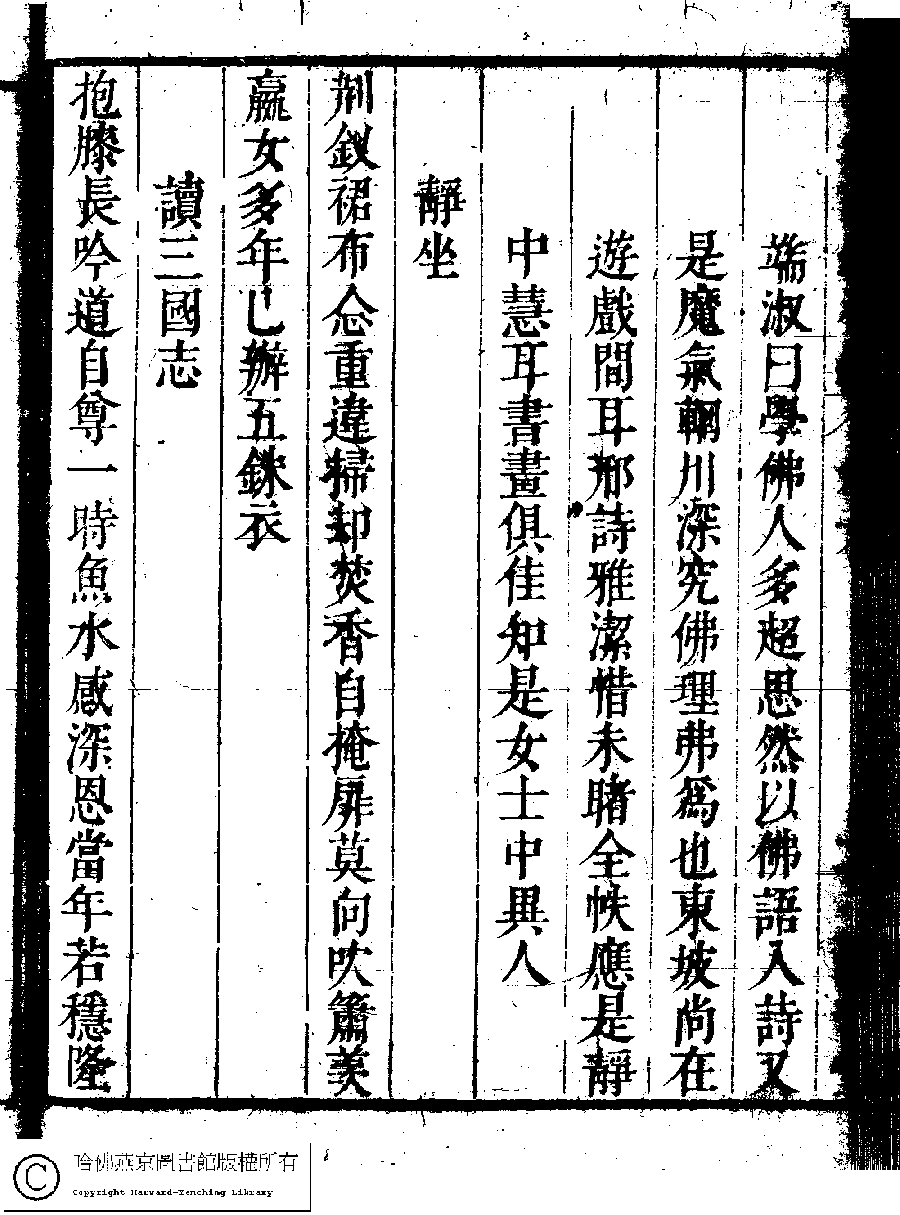 端淑曰學佛人多超思然以佛語入詩又
是魔氣輞川深究佛理弗爲也東坡尚在
遊戲間耳邢詩雅潔惜未睹全帙應是靜
中慧耳書畫俱佳知是女士中異人
靜坐
荆釵裙布念重違掃却焚香自掩扉莫向吹簫羨
嬴女多年已辦五銖衣
讀三國志
抱膝長吟道自尊一時魚水感深恩當年若穩隆
哈佛燕京圖書館版權所有
Copyright Harvard-Yenching Library